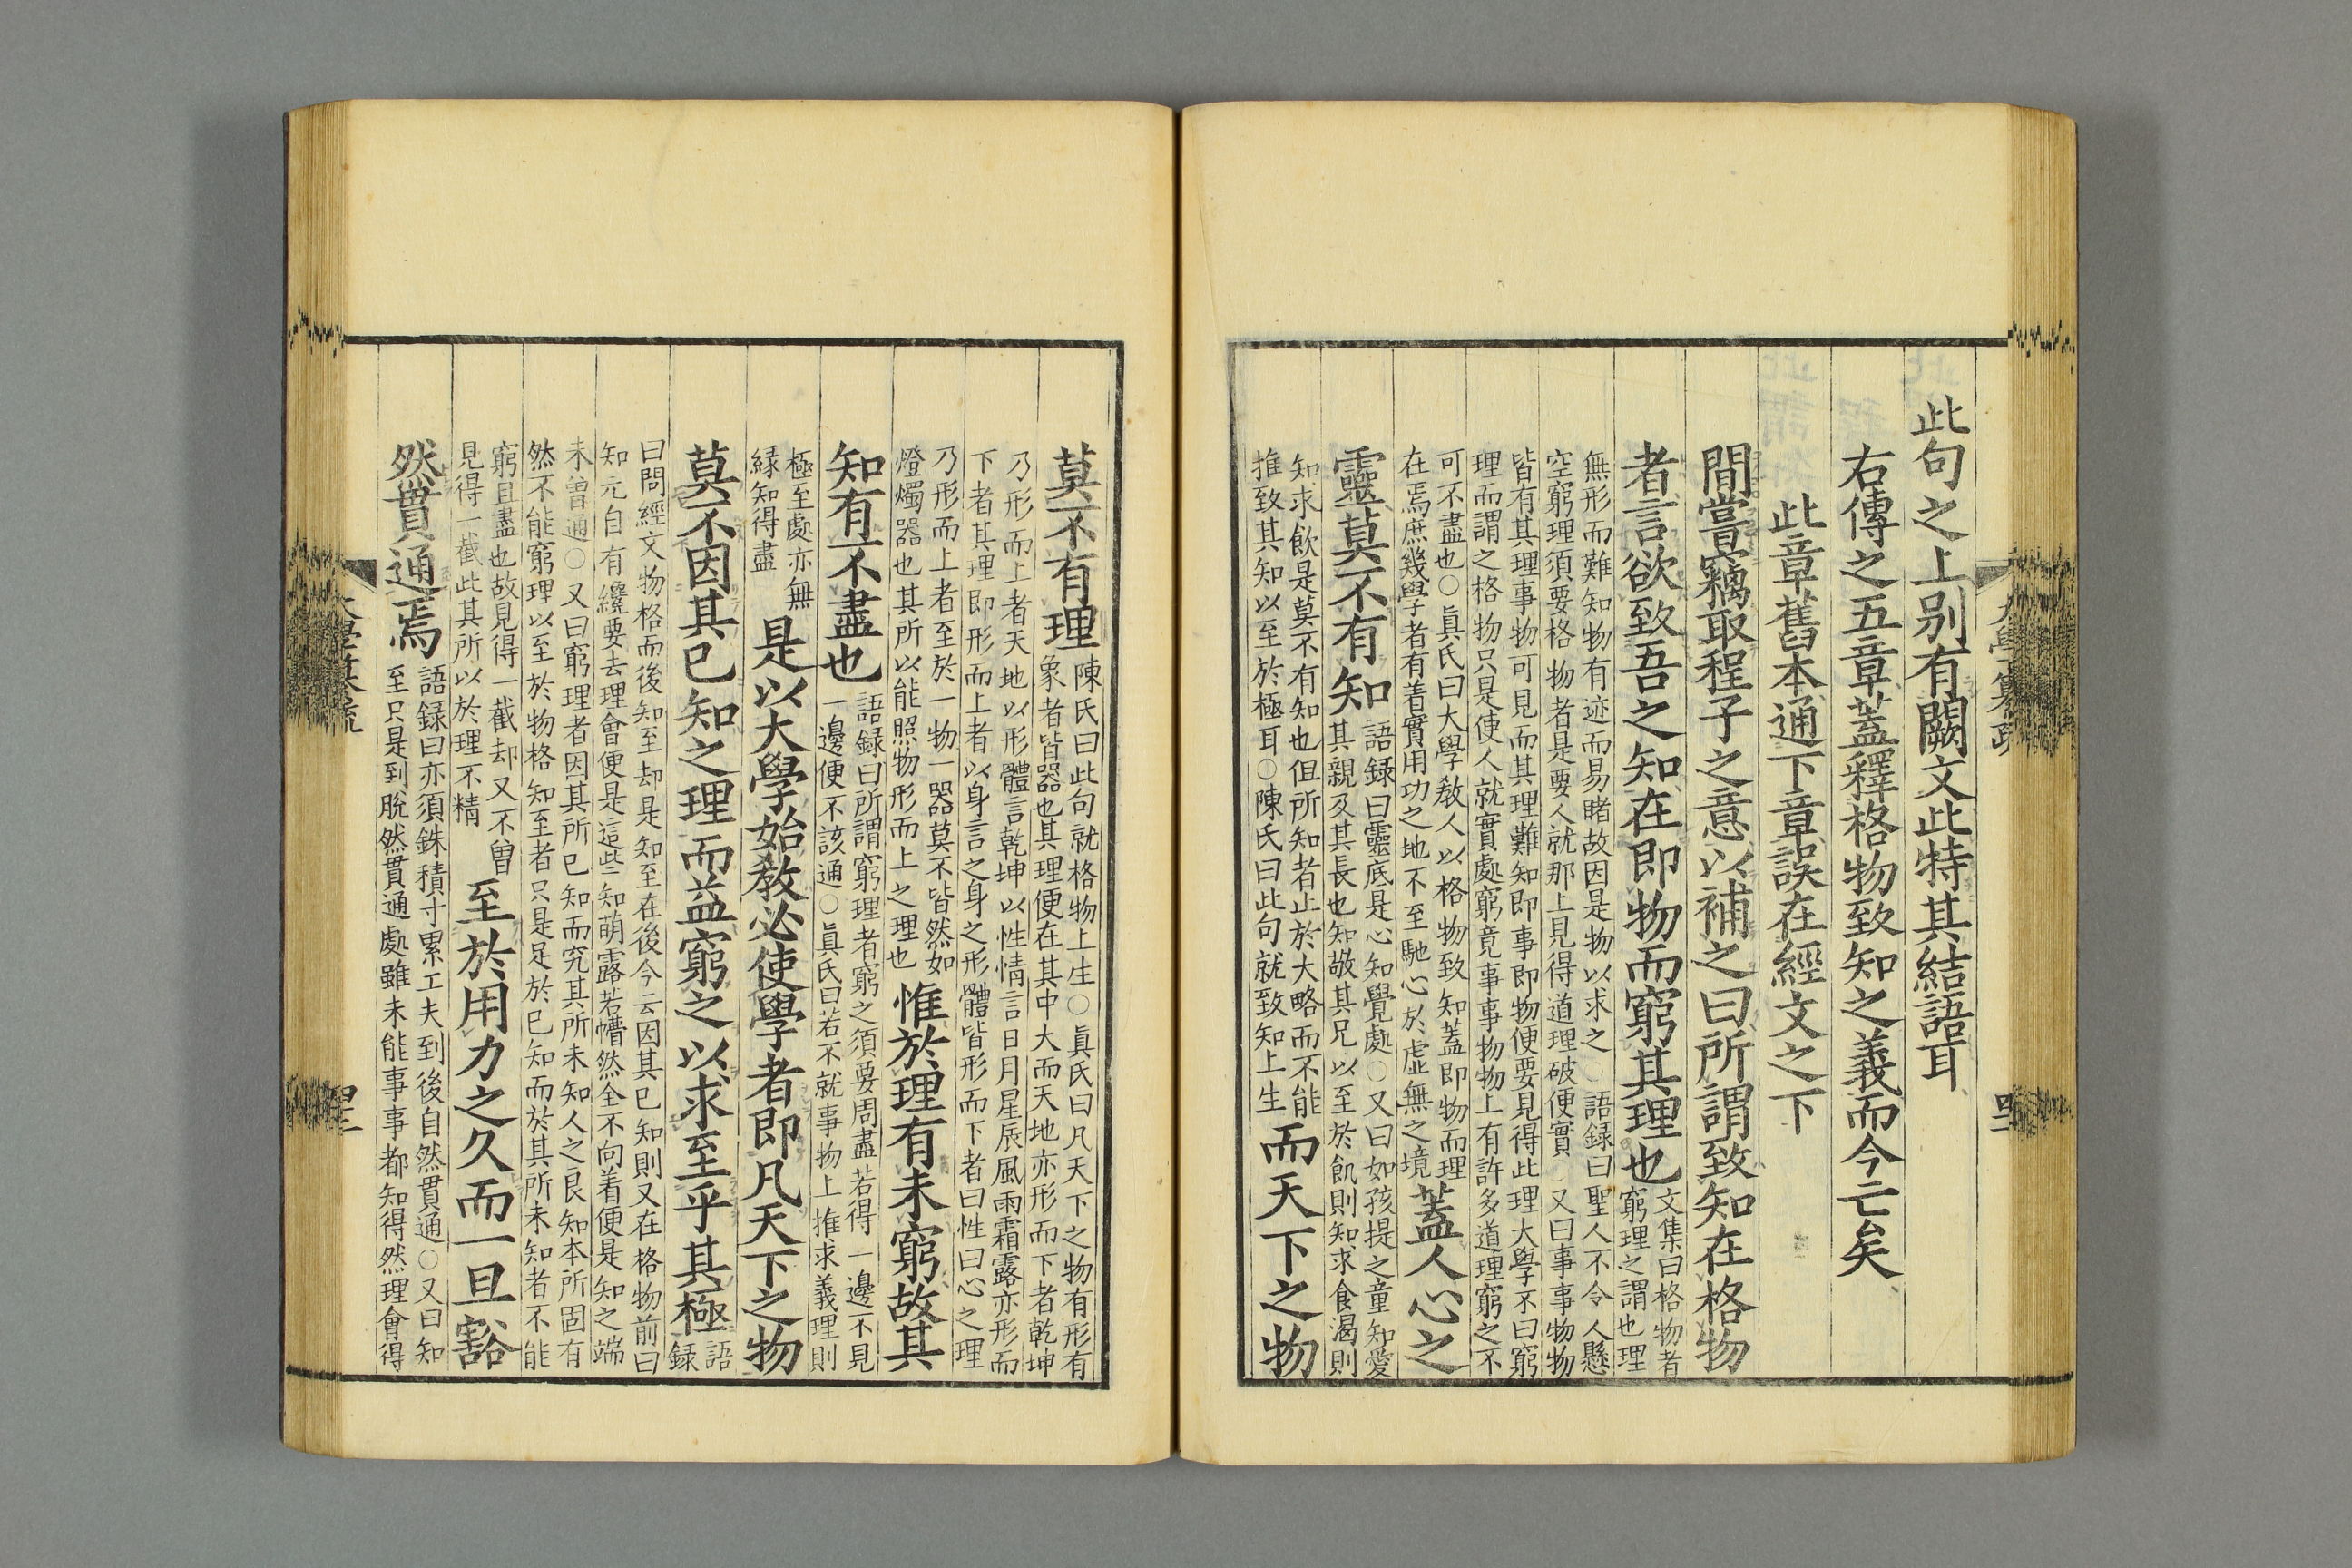 此句之上别有闕文此特其結語耳
右傳之五章蓋釋格物致知之義而今亡矣
此章舊本通下章誤在經文之下
間嘗竊取程子之意以補之曰所謂致知在格物
者言欲致吾之知在即物而窮其理也
文集曰格物者
窮理之謂也理
無形而難知物有迹而易睹故因是物以求之○語録曰聖人不令人懸
空窮理須要格物者是要人就那上見得道理破便實○又曰事事物物
皆有其理事物可見而其理難知即事即物便要見得此理大學不曰窮
理而謂之格物只是使人就實處窮竟事事物物上有許多道理窮之不
可不盡也○眞氏曰大學教人以格物致知蓋即物而理
在焉庶幾學者有着實用功之地不至馳心於虚無之境
蓋人心之
靈莫不有知
語録曰靈底是心知覺處○又曰如孩提之童知愛
其親及其長也知敬其兄以至於飢則知求食渴則
知求飲是莫不有知也但所知者止於大略而不能
推致其知以至於極耳○陳氏曰此句就致知上生
而天下之物
莫不有理
陳氏曰此句就格物上生○眞氏曰凡天下之物有形有
象者皆器也其理便在其中大而天地亦形而下者乾坤
乃形而上者天地以形體言乾坤以性情言日月星辰風雨霜露亦形而
下者其理即形而上者以身言之身之形體皆形而下者曰性曰心之理
乃形而上者至於一物一器莫不皆然如
燈燭器也其所以能照物形而上之理也
惟於理有未窮故其
知有不盡也
語録曰所謂窮理者窮之須要周盡若得一邊不見
一邊便不該通○眞氏曰若不就事物上推求義理則
極至處亦無
緣知得盡
是以大學始教必使學者即凡天下之物
莫不因其已知之理而益窮之以求至乎其極
語
録
曰問經文物格而後知至却是知至在後今云因其已知則又在格物前曰
知元自有纔要去理會便是這些知萌露若懵然全不向着便是知之端
未曾通○又曰窮理者因其所已知而究其所未知人之良知本所固有
然不能窮理以至於物格知至者只是足於已知而於其所未知者不能
窮且盡也故見得一截却又不曾
見得一截此其所以於理不精
至於用力之久而一旦豁
然貫通焉
語録曰亦須銖積寸累工夫到後自然貫通○又曰知
至只是到脱然貫通處雖未能事事都知得然理會得